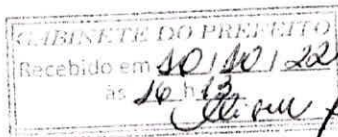 GABINETE DO PREFEITO
Recebido em 10/10/22
às 16 h 13